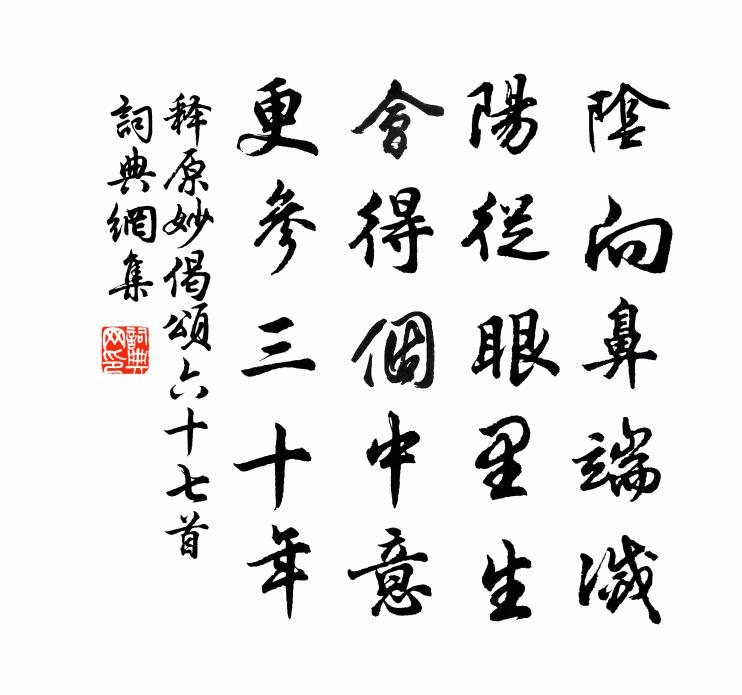 陰向鼻端滅
陽從眼里生
會得個中意
更參三十年
释原妙偈頌六十七首
詞典網集
詞典网印